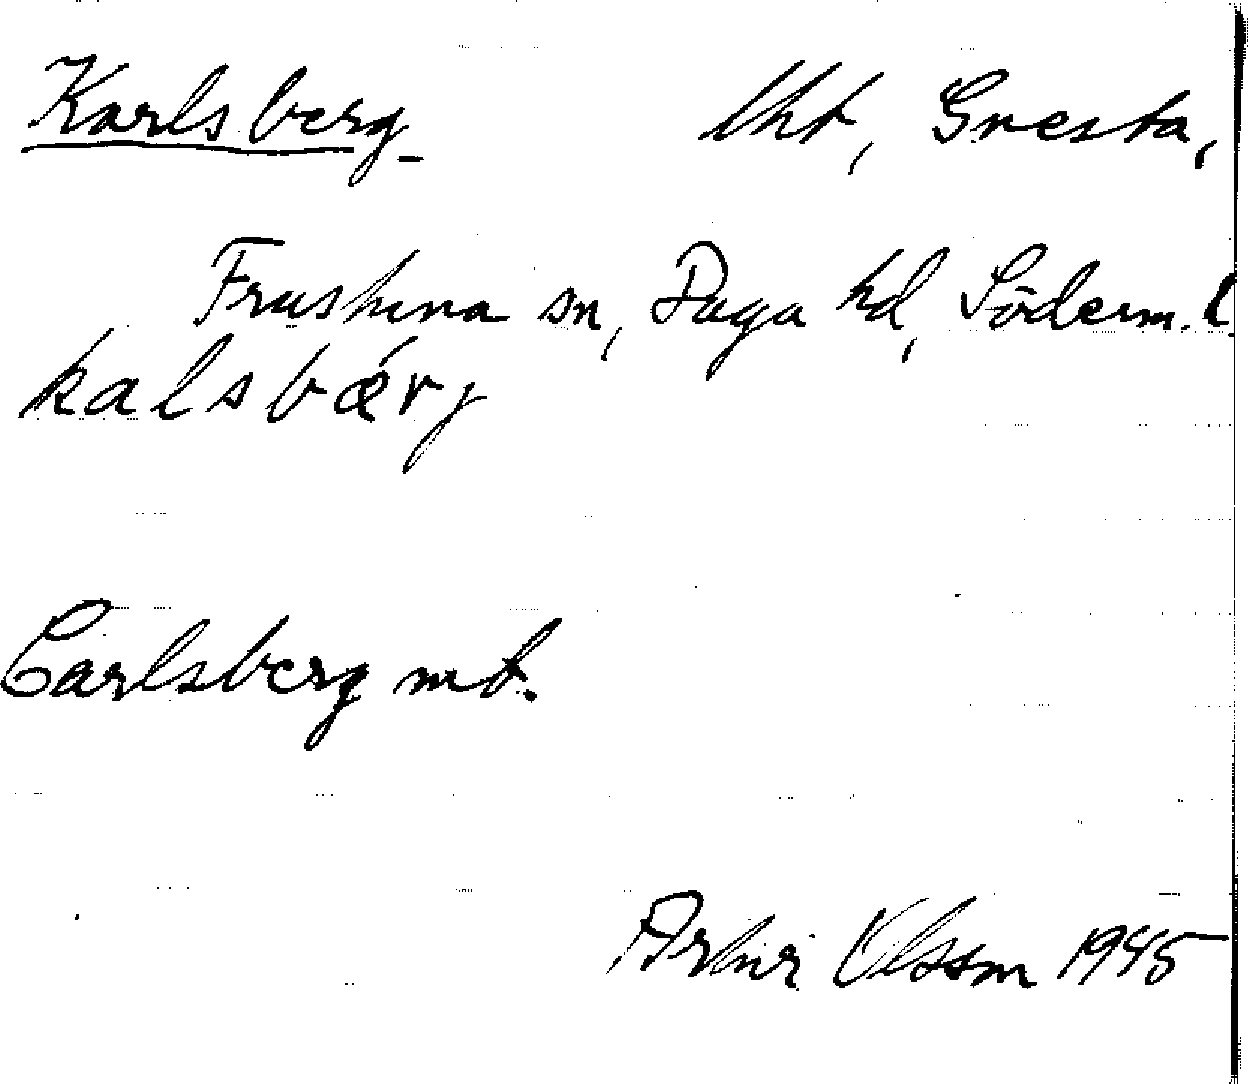 Karlsberg
lht, Gnesta,
Frustuna sn, Daga hd, Söderm. l
kalsbærj
Carlsberg mt.
Artur Olsson 1945